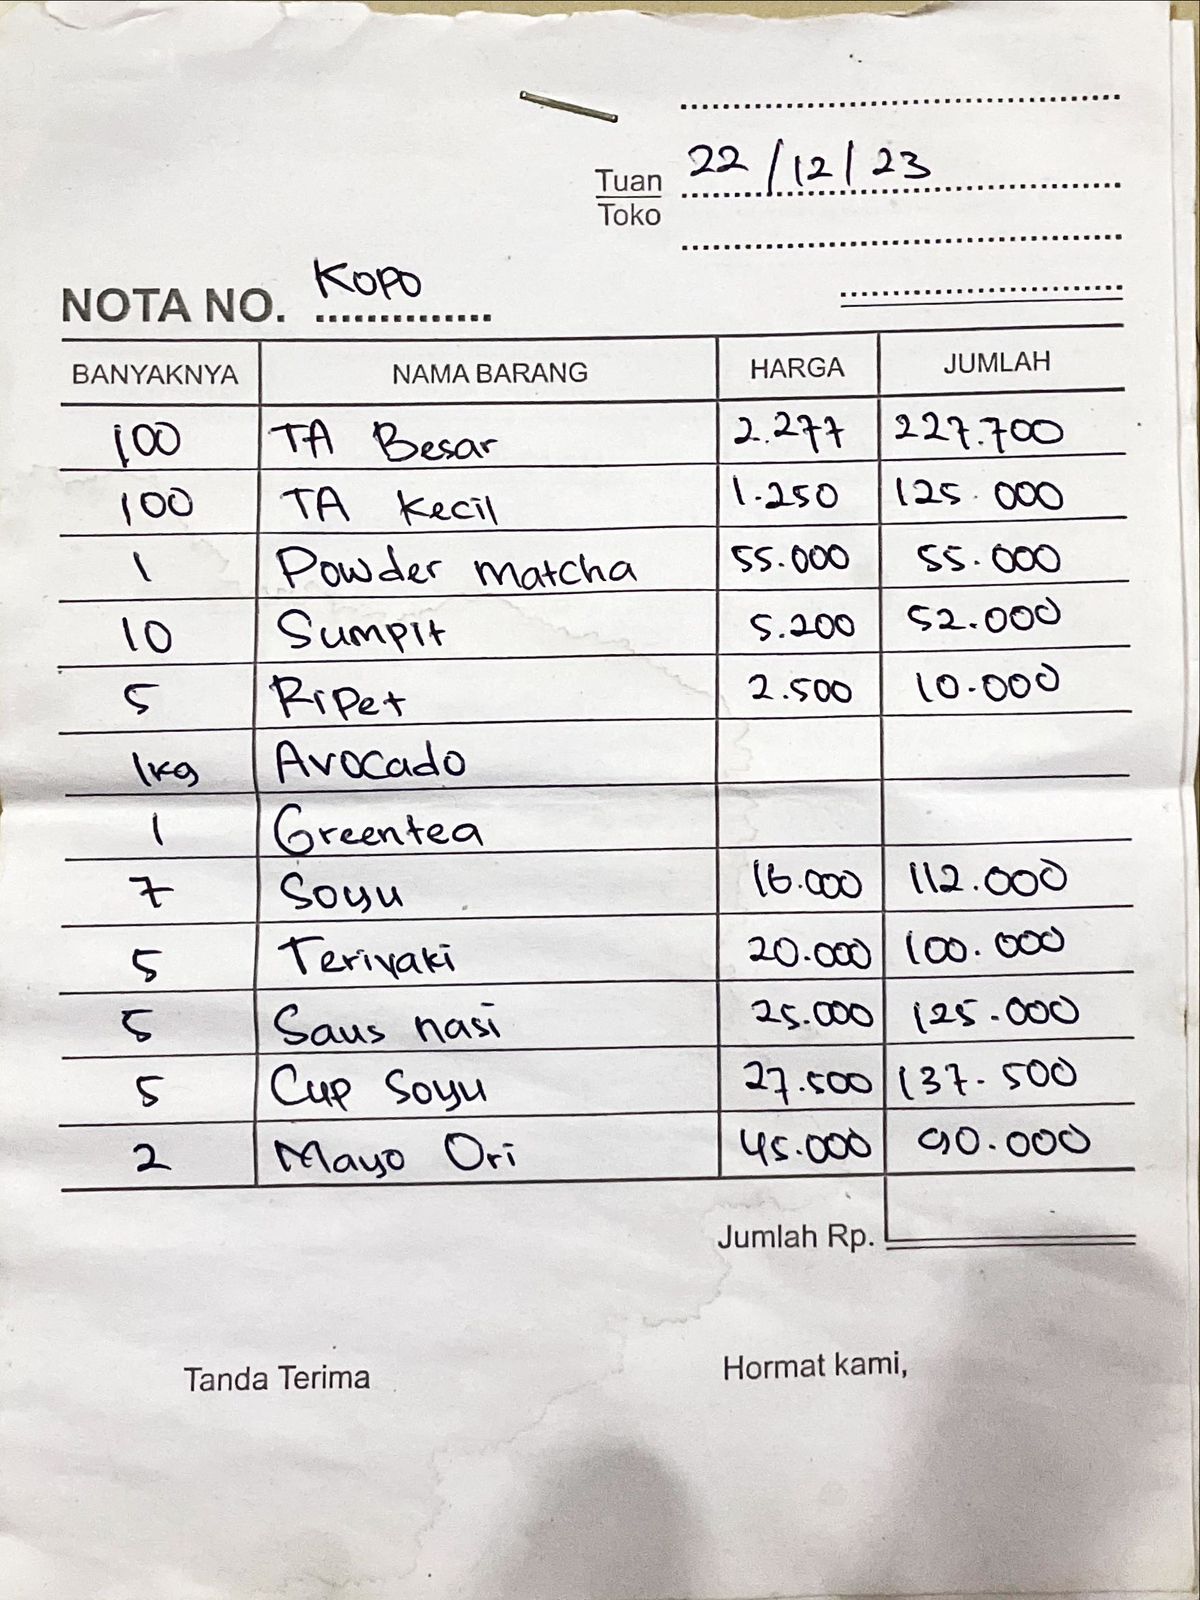 22/12/23
Tuan
Toko
NOTA NO. Kopo
BANYAKNYA NAMA BARANG HARGA JUMLAH
100 TA Besar 2.277 227.700
100 TA Kecil 1.250 125.000
1 Powder matcha 55.000 55.000
10 Sumpit 5.200 52.000
5 Ripet 2.500 10.000
1kg Avocado
1 Greentea
7 Soyu 16.000 112.000
5 Teriyaki 20.000 100.000
5 Saus nasi 25.000 125.000
5 Cup Soyu 27.500 137.500
2 Mayo Ori 45.000 90.000
Jumlah Rp.
Tanda Terima Hormat kami,